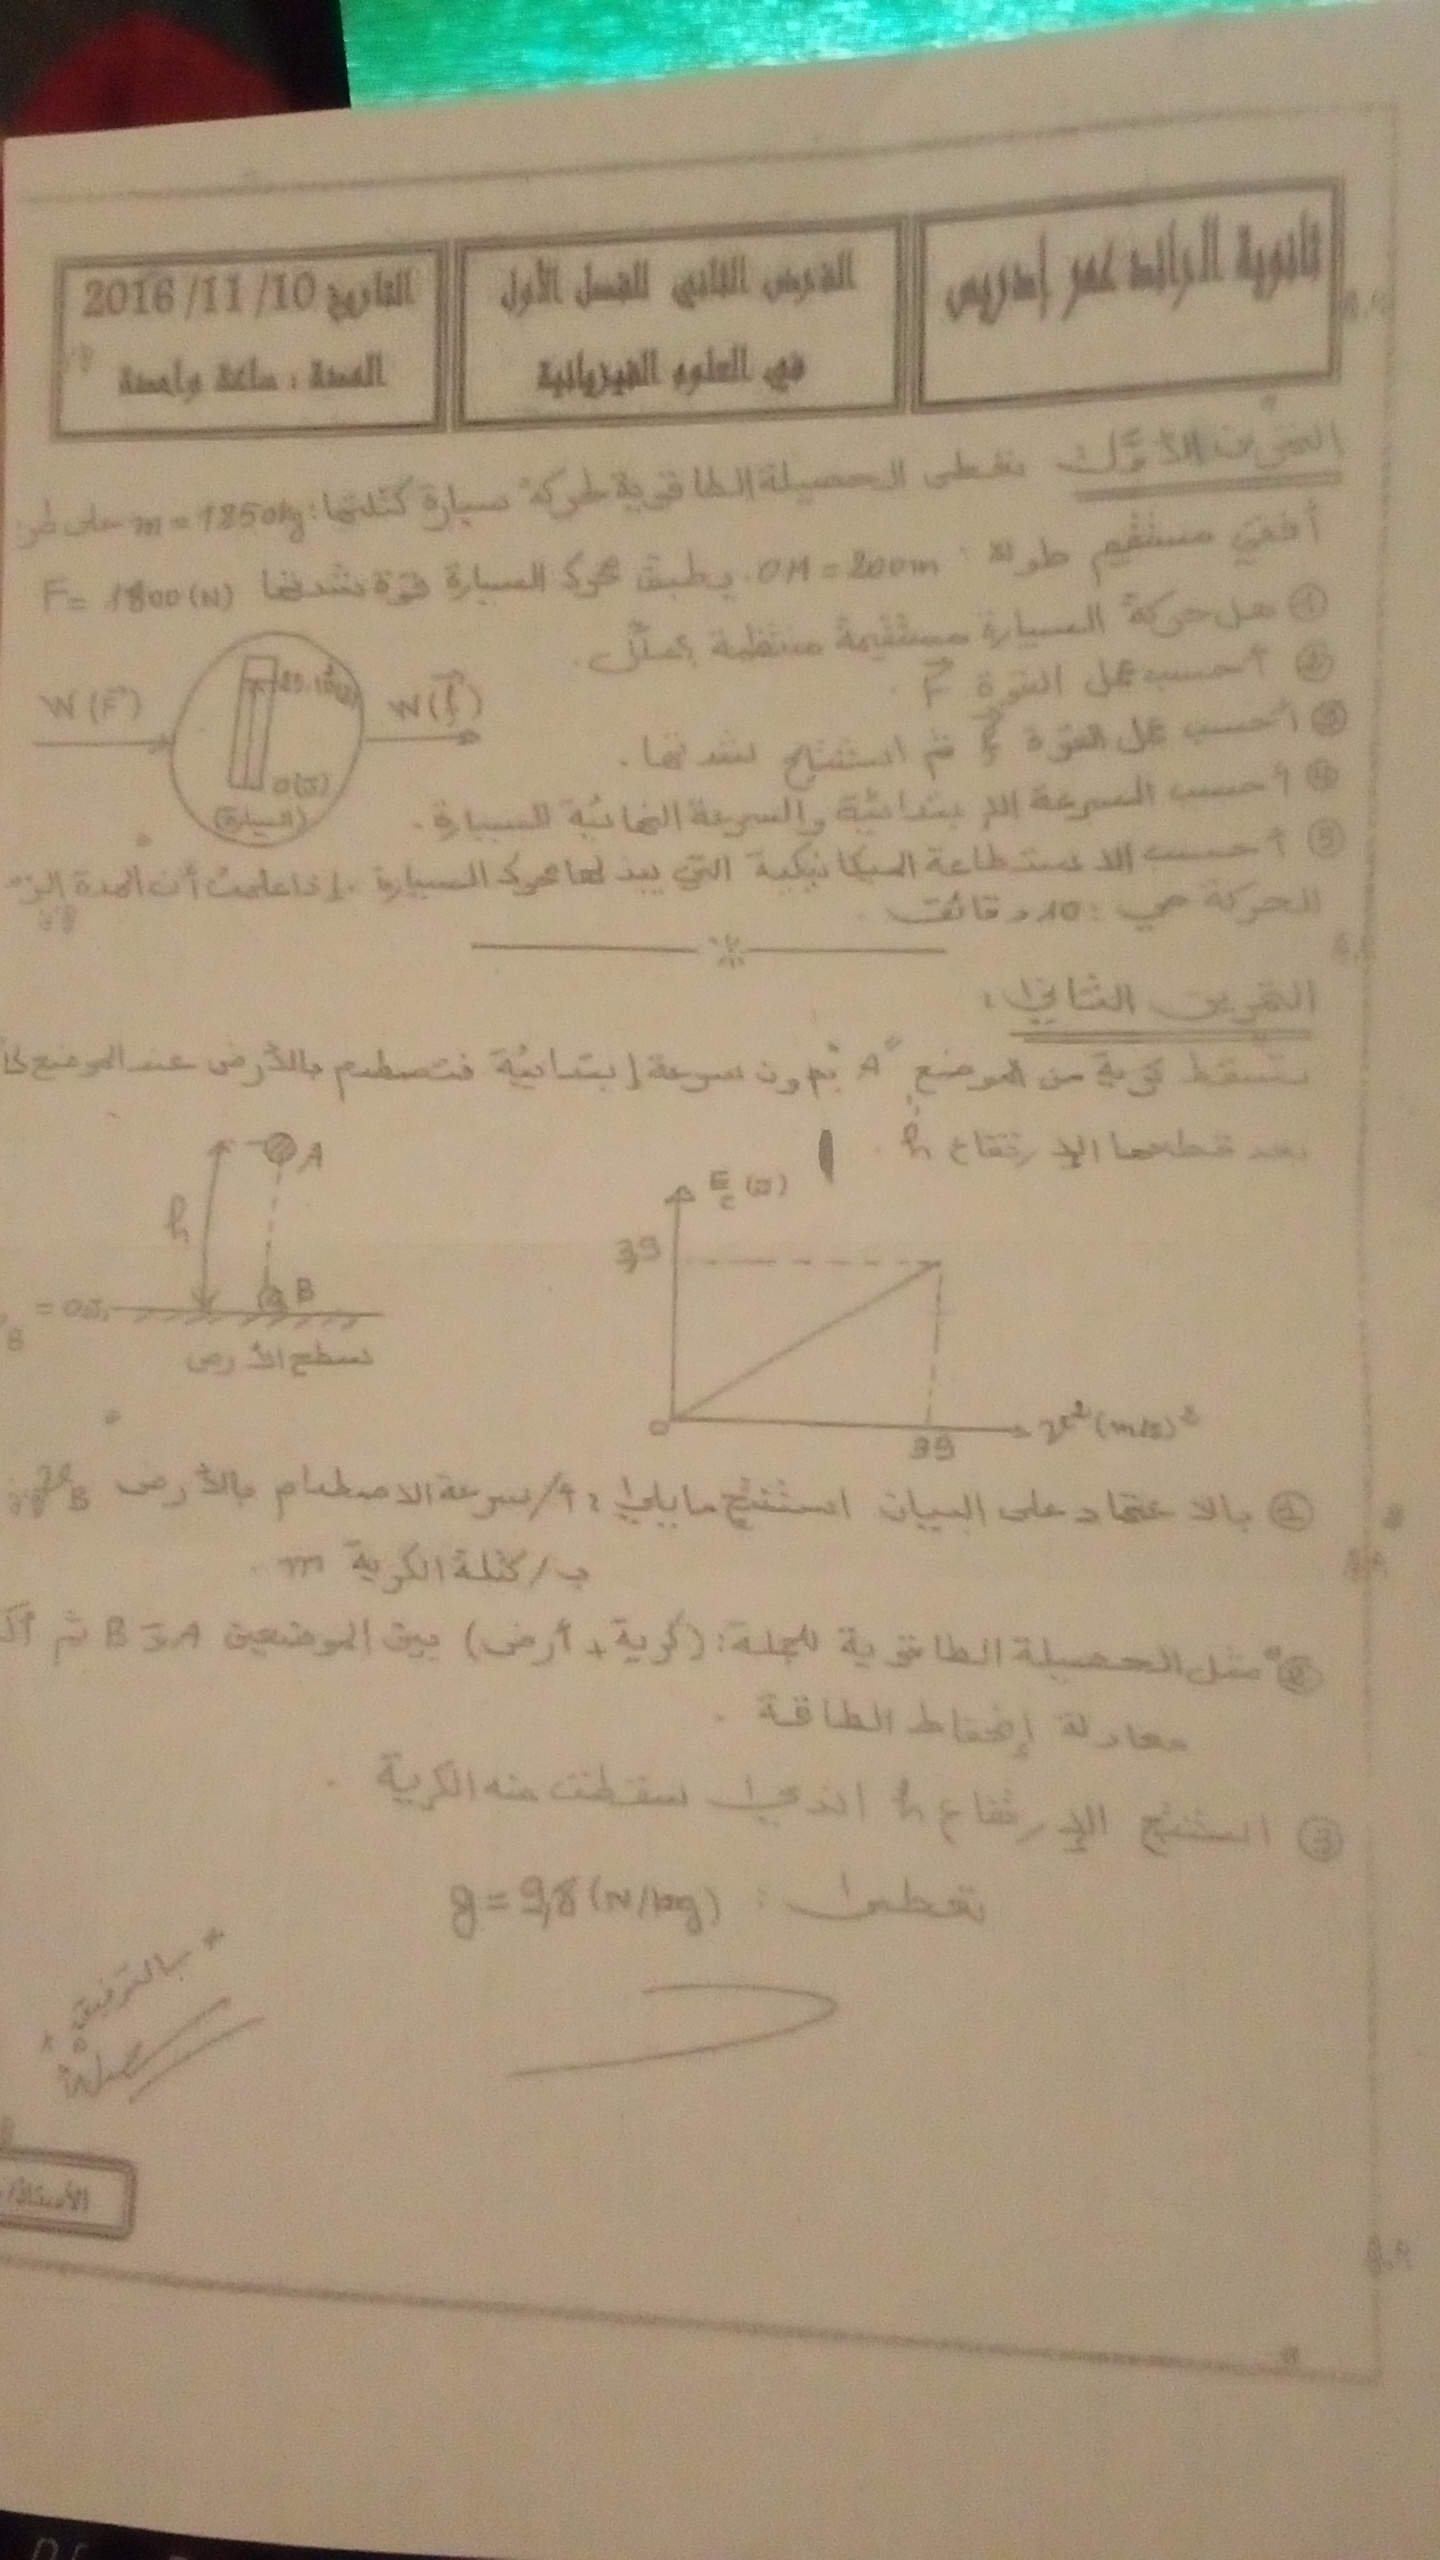 ثانوية الرائد عمر إدريس
الفرض الثاني للفصل الأول
في العلوم الفيزيائية
التاريخ 2016/11/10
المدة : ساعة واحدة
التمرين الأول نعطي الحصيلة الطاقوية لحركة سيارة كتلتها: m = 1250kg على
أفقي مستقيم طوله : OM = 200m. يطبق محرك السيارة قوة شدتها F = 1800 (N)
① هل حركة السيارة مستقيمة منتظمة علّل.
② أحسب عمل القوة F .
③ أحسب عمل القوة f ثم استنتج شدتها .
④ أحسب السرعة الابتدائية والسرعة النهائية للسيارة .
⑤ أحسب الاستطاعة الميكانيكية التي يبذلها محرك السيارة . إذا علمت أن المدة
للحركة هي : 10 دقائق .
W (F)
W (f)
0(J)
(السيارة)
التمرين الثاني :
تسقط كرية من الموضع A بدون سرعة إبتدائية فتصطدم بالأرض عند الموضع
بعد قطعها الإرتفاع h .
A
h
B
= 0J
سطح الأرض
Ec (J)
3,9
0
39
v² (m/s)²
① بالاعتماد على البيان استنتج مايلي : أ/ سرعة الاصطدام بالأرض vB
ب/ كتلة الكرية m .
② مثل الحصيلة الطاقوية للجملة: (كرية + أرض) بين الموضعين A و B ثم
معادلة إنحفاظ الطاقة .
③ استنتج الإرتفاع h الذي سقطت منه الكرية .
تعطى : g = 9,8 (N/kg)
* بالتوفيق *
الأستاذ